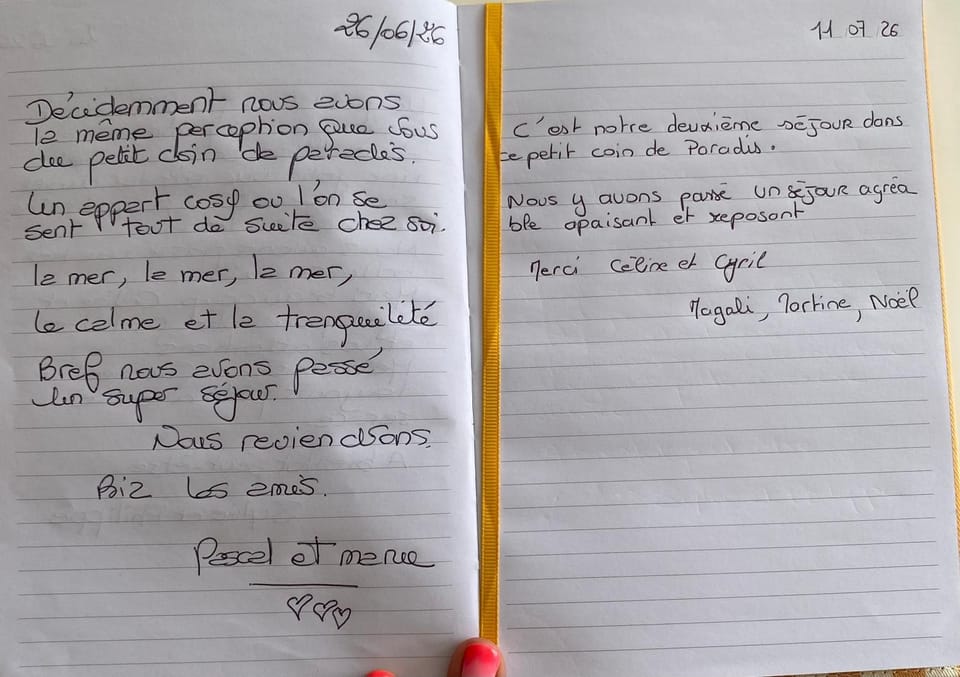 26/06/26
Décidemment nous avons
la même perception que vous
du petit coin de paradis.
Un appart cosy ou l'on se
sent tout de suite chez soi.
la mer, la mer, la mer,
le calme et la tranquilité
Bref nous avons passé
un super séjour.
Nous reviendrons.
Biz les amis.
Pascal et
11 07 26
C'est notre deuxième séjour dans
ce petit coin de Paradis.
Nous y avons passé un séjour agréa
ble apaisant et reposant
Merci Céline et Cyril
Magali, Martine, Noël